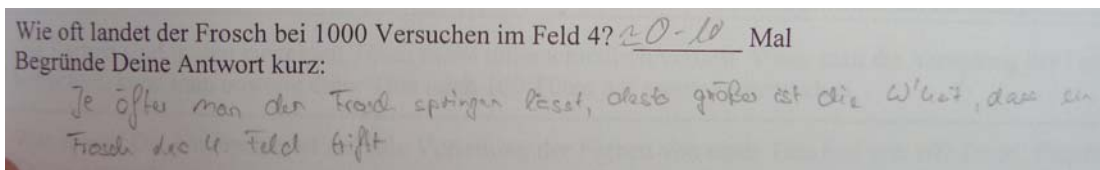 Wie oft landet der Frosch bei 1000 Versuchen im Feld 4? ~0-10 Mal
Begründe Deine Antwort kurz:
Je öfter man den Frosch springen lässt, desto größer ist die W'keit, dass ein
Frosch das 4. Feld trifft